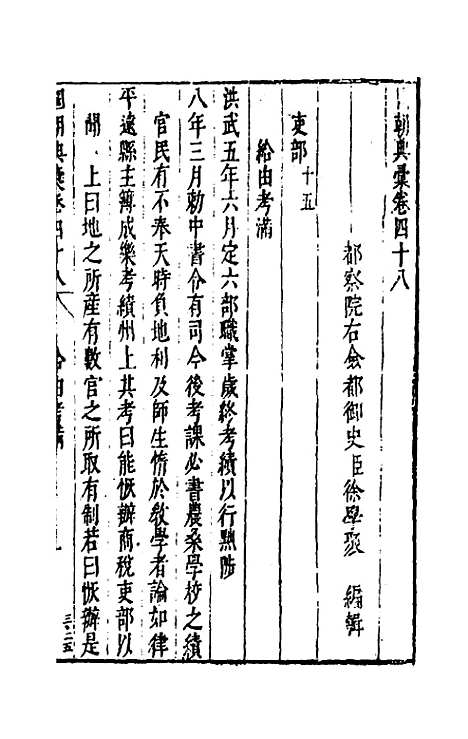 朝典彙卷四十八
都察院右僉都御史臣徐學聚 編輯
吏部十五
給由考滿
洪武五年六月定六部職掌歲終考績以行黜陟
八年三月勅中書令有司今後考課必書農桑學校之績
官民有不奉天時負地利及師生惰於敎學者論如律
平遠縣主簿成樂考績州上其考曰能恢辦商稅吏部以
聞上曰地之所産有數官之所取有制若曰恢辦是
國朝典彙卷四十八 給由考滿 三二五